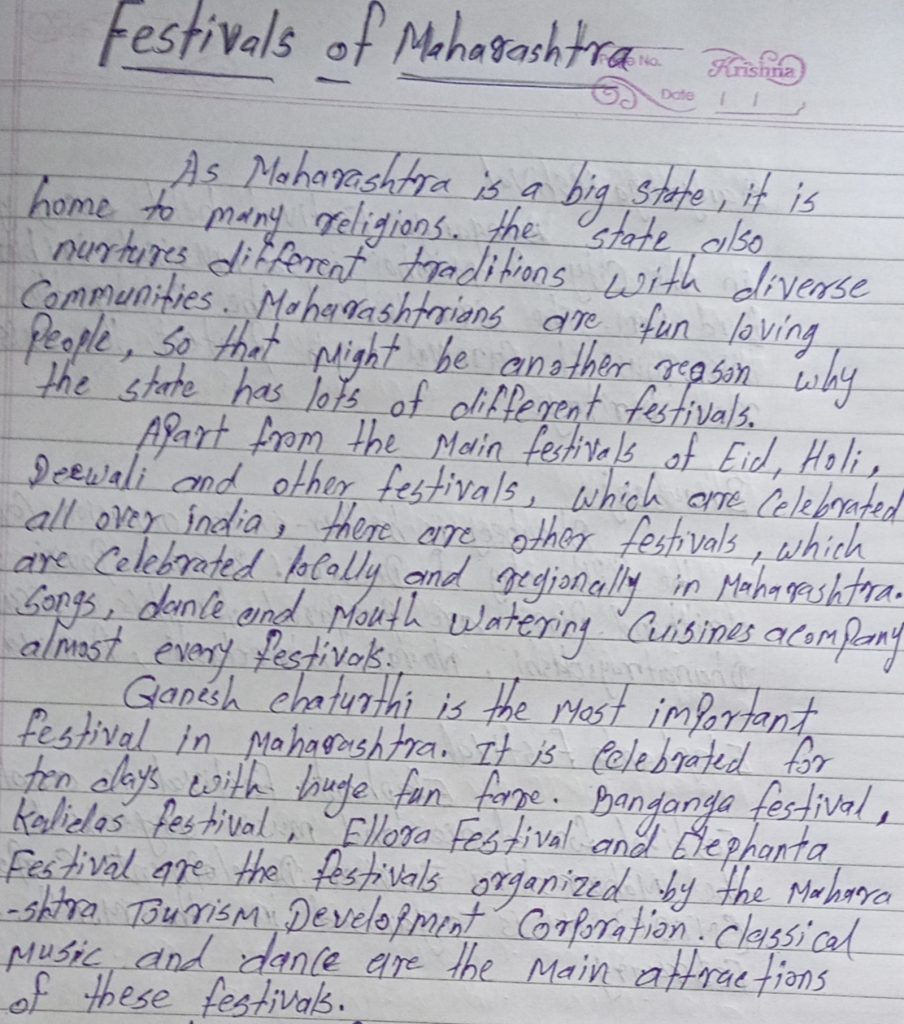 Festivals of Maharashtra
Page No.
Krishna
Date / /
As Maharashtra is a big state, it is
home to many religions. the state also
nurtures different traditions with diverse
Communities. Maharashtrians are fun loving
People, so that might be another reason why
the state has lots of different festivals.
Apart from the Main festivals of Eid, Holi,
Deewali and other festivals, which are Celebrated
all over india, there are other festivals, which
are Celebrated locally and regionally in Maharashtra.
Songs, dance and Mouth Watering Cuisines acompany
almost every festivals.
Ganesh chaturthi is the Most important
festival in Maharashtra. It is Celebrated for
ten days with huge fun fare. Banganga festival,
Kalidas festival, Ellora Festival and Elephanta
Festival are the festivals organized by the Mahara
-shtra Tourism Development Corporation. Classical
Music and dance are the Main attractions
of these festivals.